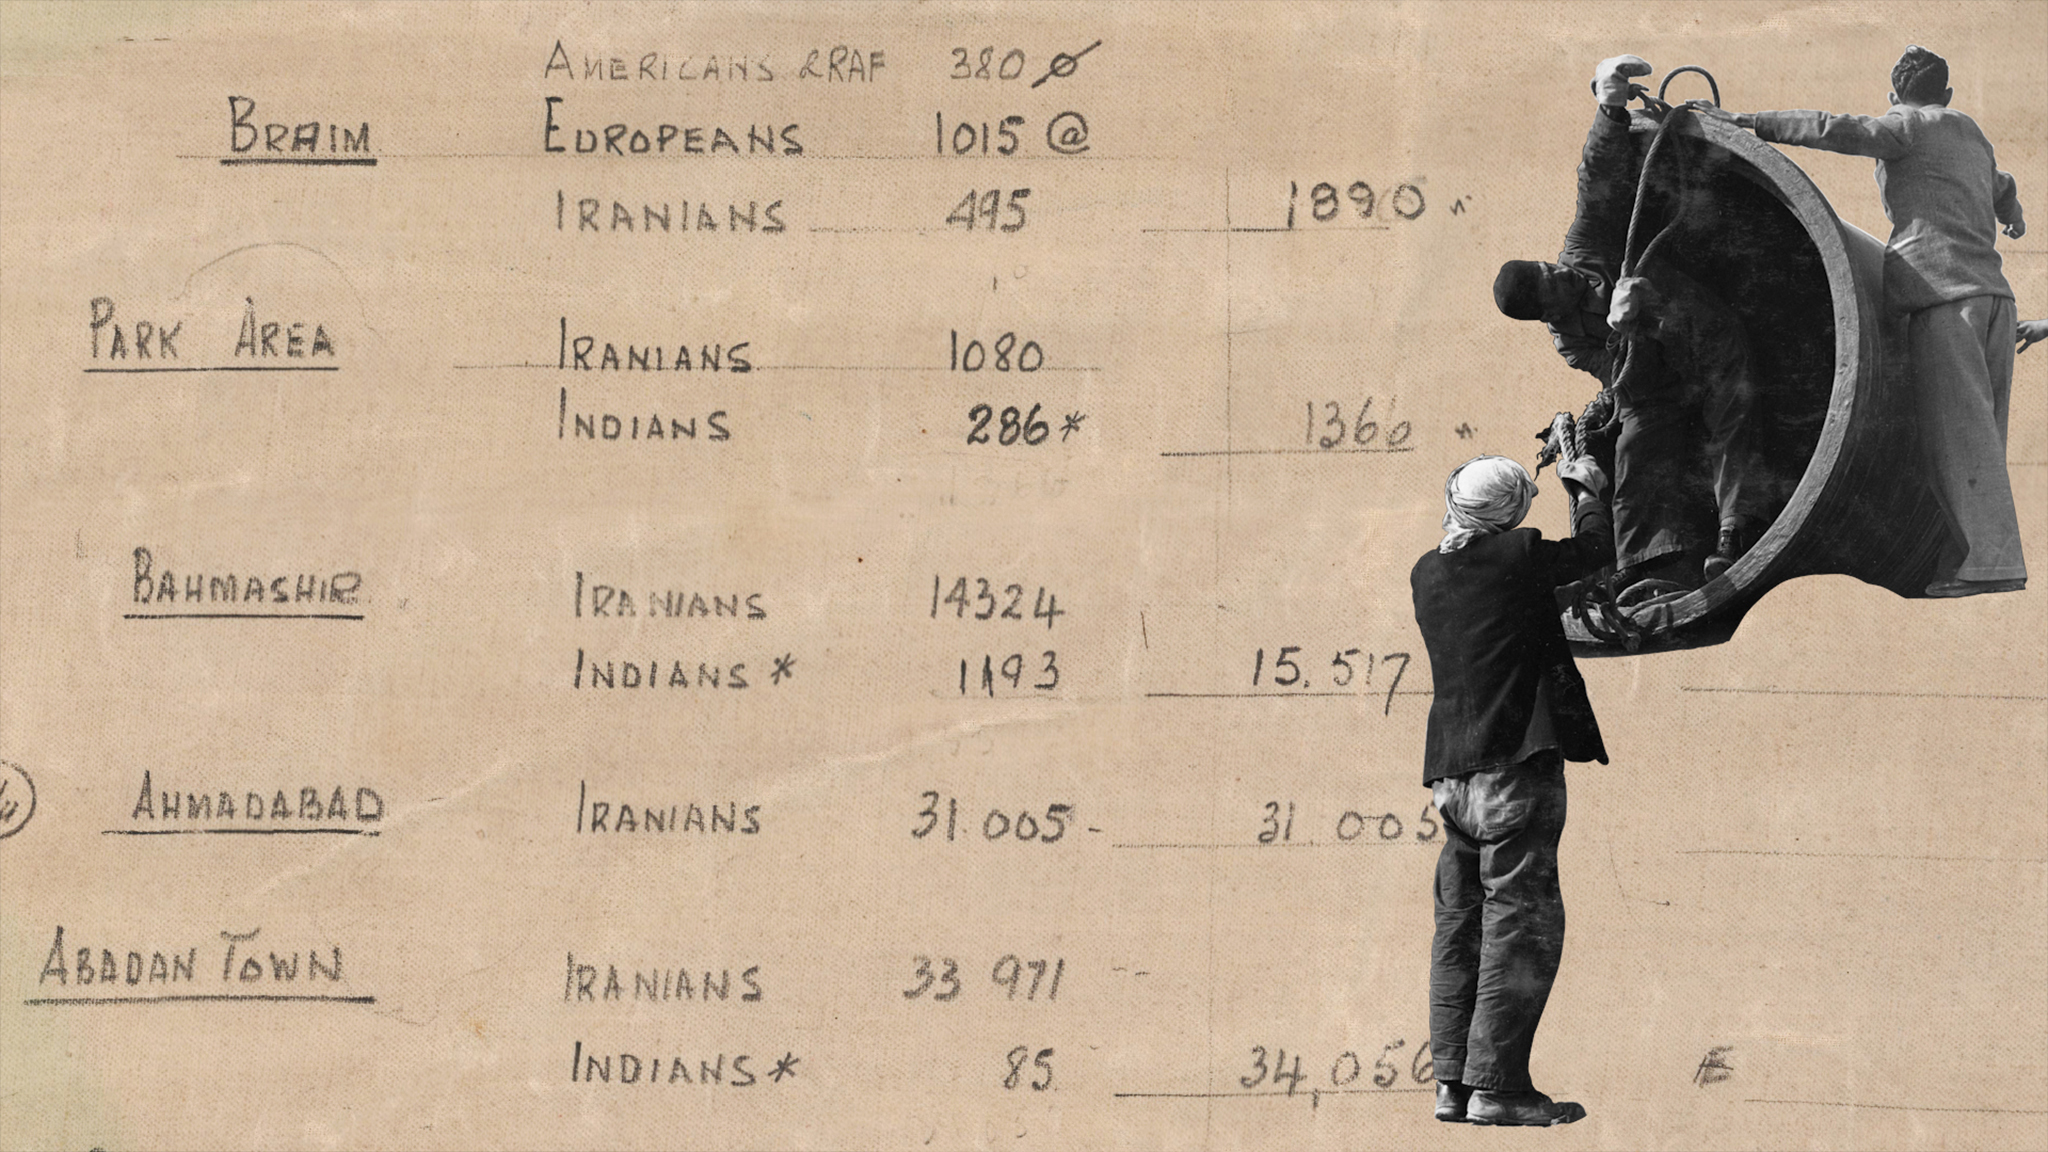 AMERICANS & RAF 380 ø
BRAIM EUROPEANS 1015 @
IRANIANS 495 1890 "
PARK AREA IRANIANS 1080
INDIANS 286* 1366 "
BAHMASHIR IRANIANS 14324
INDIANS * 1193 15.517
AHMADABAD IRANIANS 31.005 - 31.005
ABADAN TOWN IRANIANS 33 971 --
INDIANS * 85 34,056